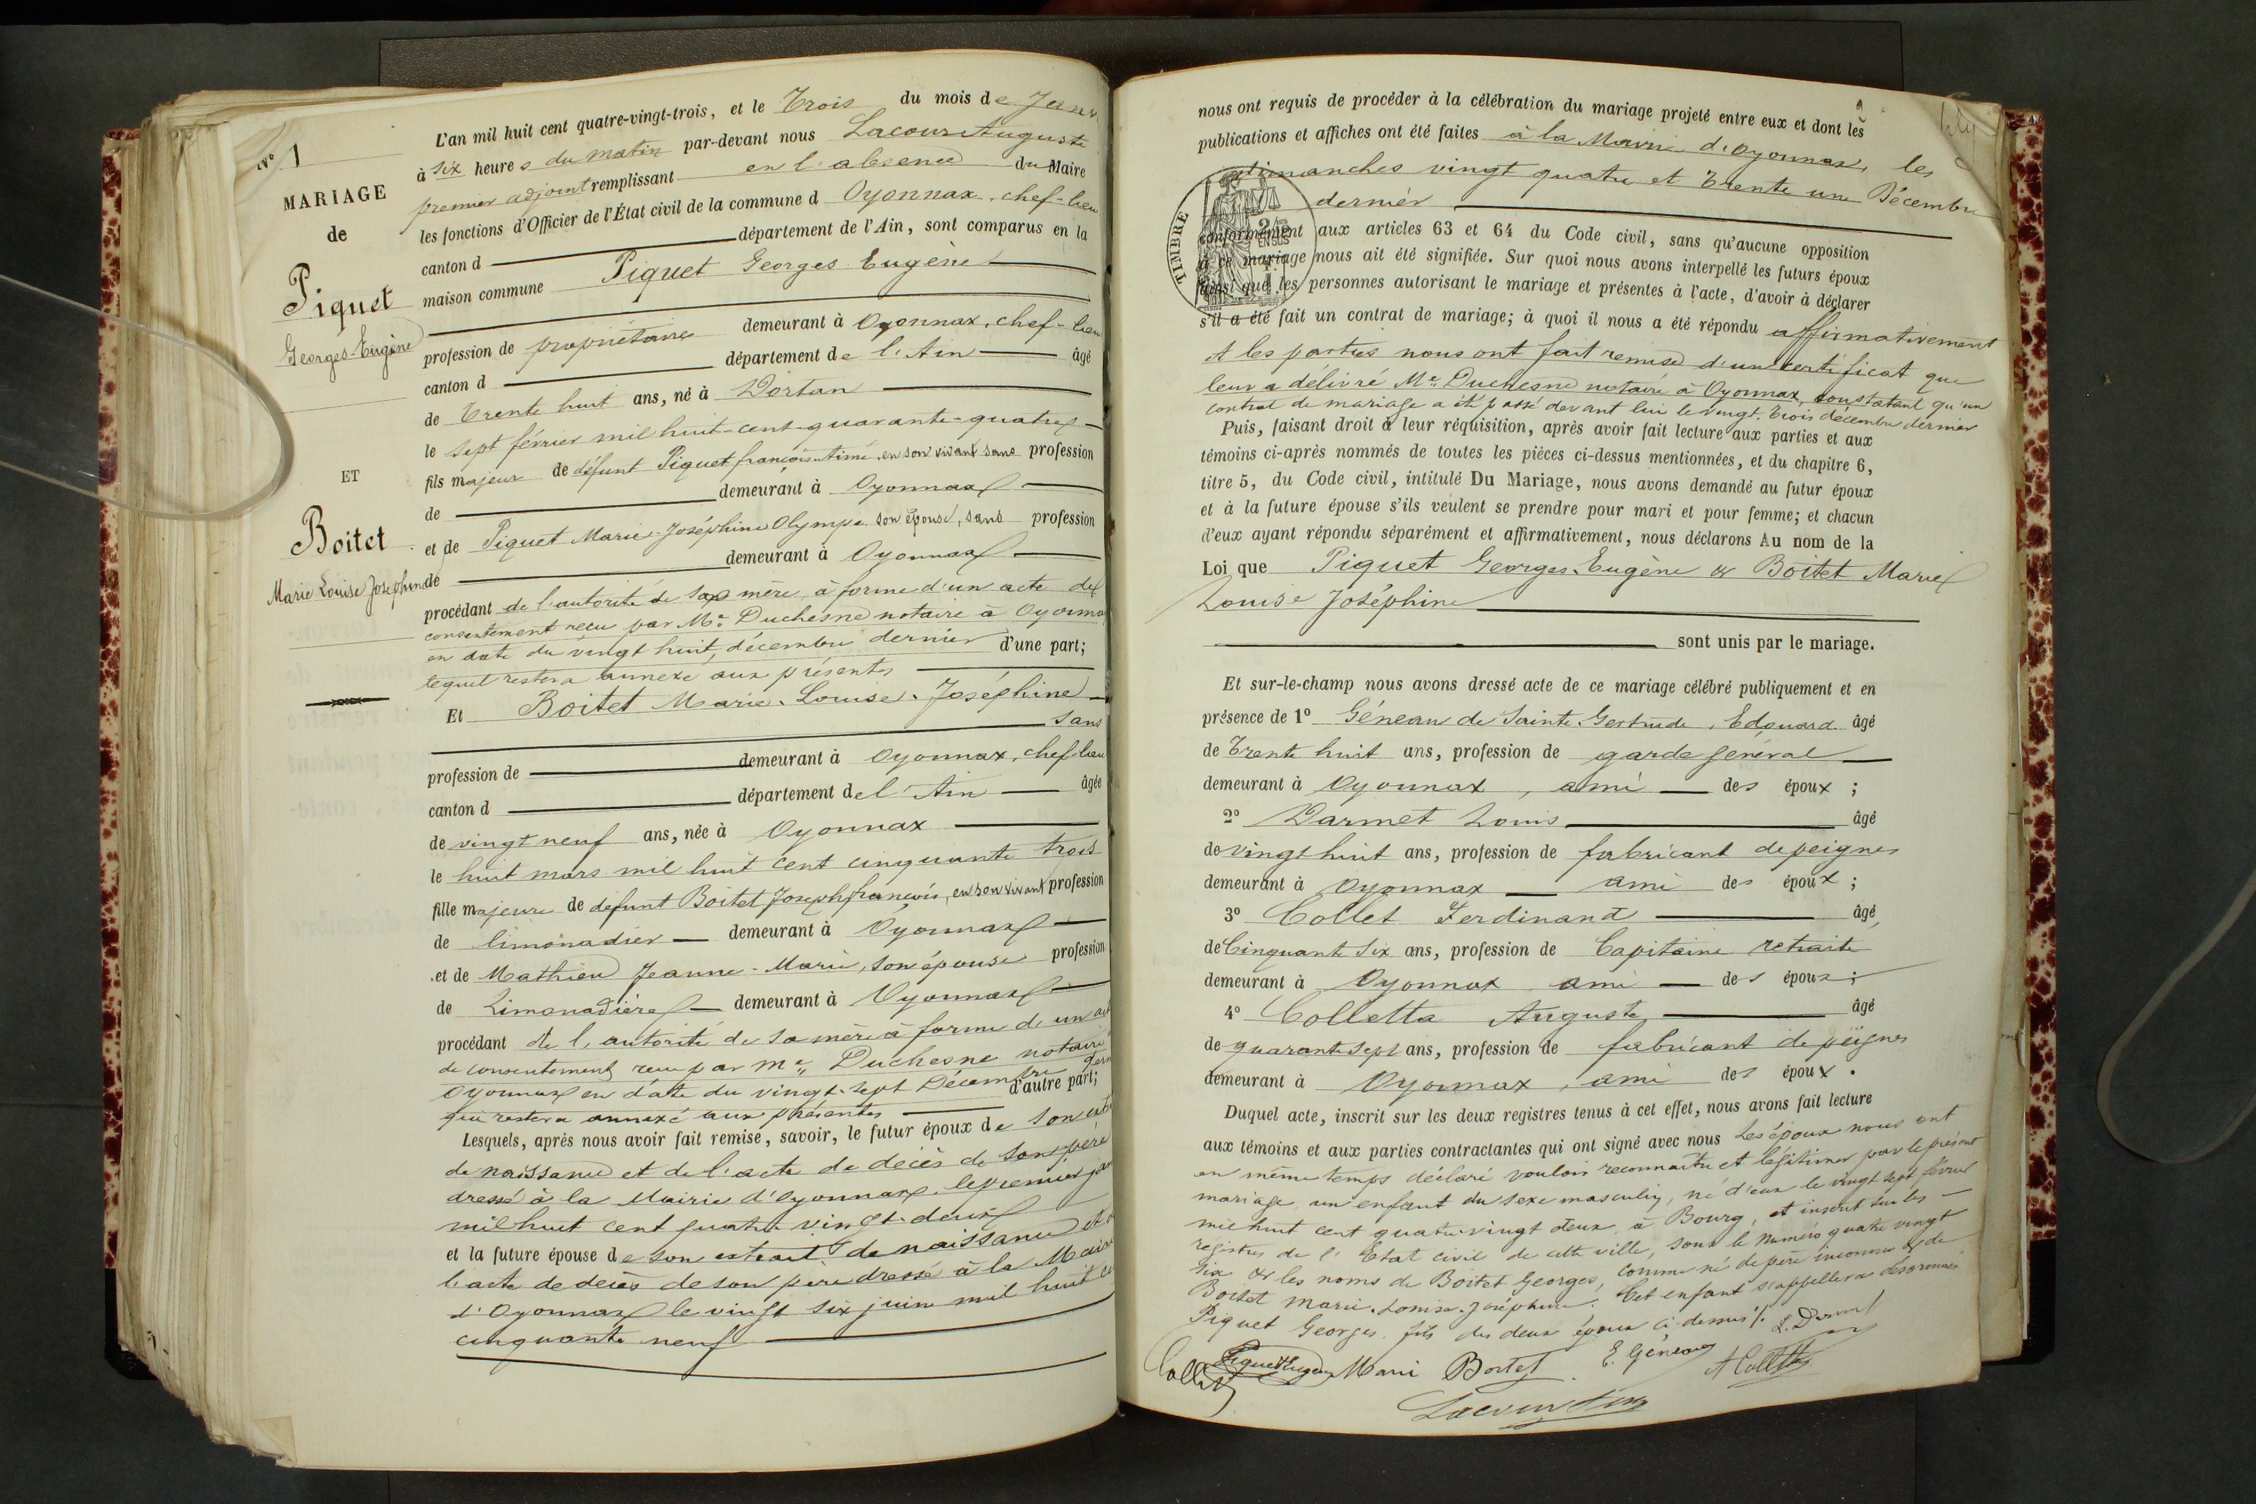 N° 1
MARIAGE
de
Piquet
Georges-Eugène
ET
Boitet
Marie Louise Joséphine
L'an mil huit cent quatre-vingt-trois, et le Trois du mois de Janv
à six heures du matin par-devant nous Lacour Auguste
premier adjoint remplissant en l'absence du Maire
les fonctions d'Officier de l'État civil de la commune d Oyonnax, chef-lieu
canton d département de l'Ain, sont comparus en la
maison commune Piquet Georges Eugène
profession de propriétaire demeurant à Oyonnax, chef-lieu
canton d département de l'Ain âgé
de Trente huit ans, né à Dortan
le sept février mil huit-cent-quarante-quatre
fils majeur de défunt Piquet françois-Aimé, en son vivant sans profession
de demeurant à Oyonnax
et de Piquet Marie-Joséphine Olympe son épouse, sans profession
de demeurant à Oyonnax
procédant de l'autorité de sa mère, à forme d'un acte de
consentement reçu par Me Duchesne notaire à Oyonnax
en date du vingt huit décembre dernier d'une part;
lequel restera annexé aux présentes
Et Boitet Marie-Louise-Joséphine
sans
profession de demeurant à Oyonnax, chef lieu
canton d département de l'Ain âgée
de vingt neuf ans, née à Oyonnax
le huit mars mil huit cent cinquante trois
fille majeure de défunt Boitet Joseph françois, en son vivant profession
de limonadier demeurant à Oyonnax
et de Mathieu Jeanne-Marie, son épouse profession
de Limonadière demeurant à Oyonnax
procédant de l'autorité de sa mère à forme d'un act
de consentement reçu par Me Duchesne notaire
Oyonnax en date du vingt-sept Décembre dern
d'autre part;
qui restera annexé aux présentes
Lesquels, après nous avoir fait remise, savoir, le futur époux de son ext
de naissance et de l'acte de décès de son père
dressé à la Mairie d'Oyonnax, le premier jan
mil huit cent quatre vingt-deux
et la future épouse de son extrait de naissance et d
l'acte de décès de son père dressé à la Mairie
d'Oyonnax le vingt six juin mil huit ce
cinquante neuf
nous ont requis de procéder à la célébration du mariage projeté entre eux et dont les
publications et affiches ont été faites à la Mairie d'Oyonnax, les
dimanches vingt quatre et trente un Décembre
dernier
TIMBRE
conformément aux articles 63 et 64 du Code civil, sans qu'aucune opposition
à ce mariage nous ait été signifiée. Sur quoi nous avons interpellé les futurs époux
ainsi que les personnes autorisant le mariage et présentes à l'acte, d'avoir à déclarer
s'il a été fait un contrat de mariage; à quoi il nous a été répondu affirmativement
et les parties nous ont fait remise d'un certificat que
leur a délivré Me Duchesne notaire à Oyonnax, constatant qu'un
contrat de mariage a été passé devant lui le vingt-trois décembre dernier
Puis, faisant droit à leur réquisition, après avoir fait lecture aux parties et aux
témoins ci-après nommés de toutes les pièces ci-dessus mentionnées, et du chapitre 6,
titre 5, du Code civil, intitulé Du Mariage, nous avons demandé au futur époux
et à la future épouse s'ils veulent se prendre pour mari et pour femme; et chacun
d'eux ayant répondu séparément et affirmativement, nous déclarons Au nom de la
Loi que Piquet Georges-Eugène & Boitet Marie
Louise Joséphine
sont unis par le mariage.
Et sur-le-champ nous avons dressé acte de ce mariage célébré publiquement et en
présence de 1° Géneau de Sainte-Gertrude, Edouard âgé
de Trente huit ans, profession de garde général
demeurant à Oyonnax, ami des époux;
2° Darmet Louis âgé
de vingt huit ans, profession de fabricant de peignes
demeurant à Oyonnax ami des époux;
3° Collet Ferdinand âgé
de Cinquante six ans, profession de Capitaine retraité
demeurant à Oyonnax ami des époux;
4° Colletta Auguste âgé
de quarante sept ans, profession de fabricant de peignes
demeurant à Oyonnax, ami des époux.
Duquel acte, inscrit sur les deux registres tenus à cet effet, nous avons fait lecture
aux témoins et aux parties contractantes qui ont signé avec nous Les époux nous ont
en même temps déclaré vouloir reconnaître et légitimer par le présent
mariage un enfant du sexe masculin, né d'eux le vingt sept février
mil huit cent quatre-vingt deux, à Bourg, et inscrit sur les
registres de l'Etat civil de cette ville, sous le numéro quatre vingt
six & les noms de Boitet Georges, comme né de père inconnu & de
Boitet Marie-Louise-Joséphine. Cet enfant s'appellera désormais
Piquet Georges fils des deux époux ci-dessus.
L. Darmet
Collet Piquet Eugène Marie Boitet E. Géneau A Colletta
Lacour